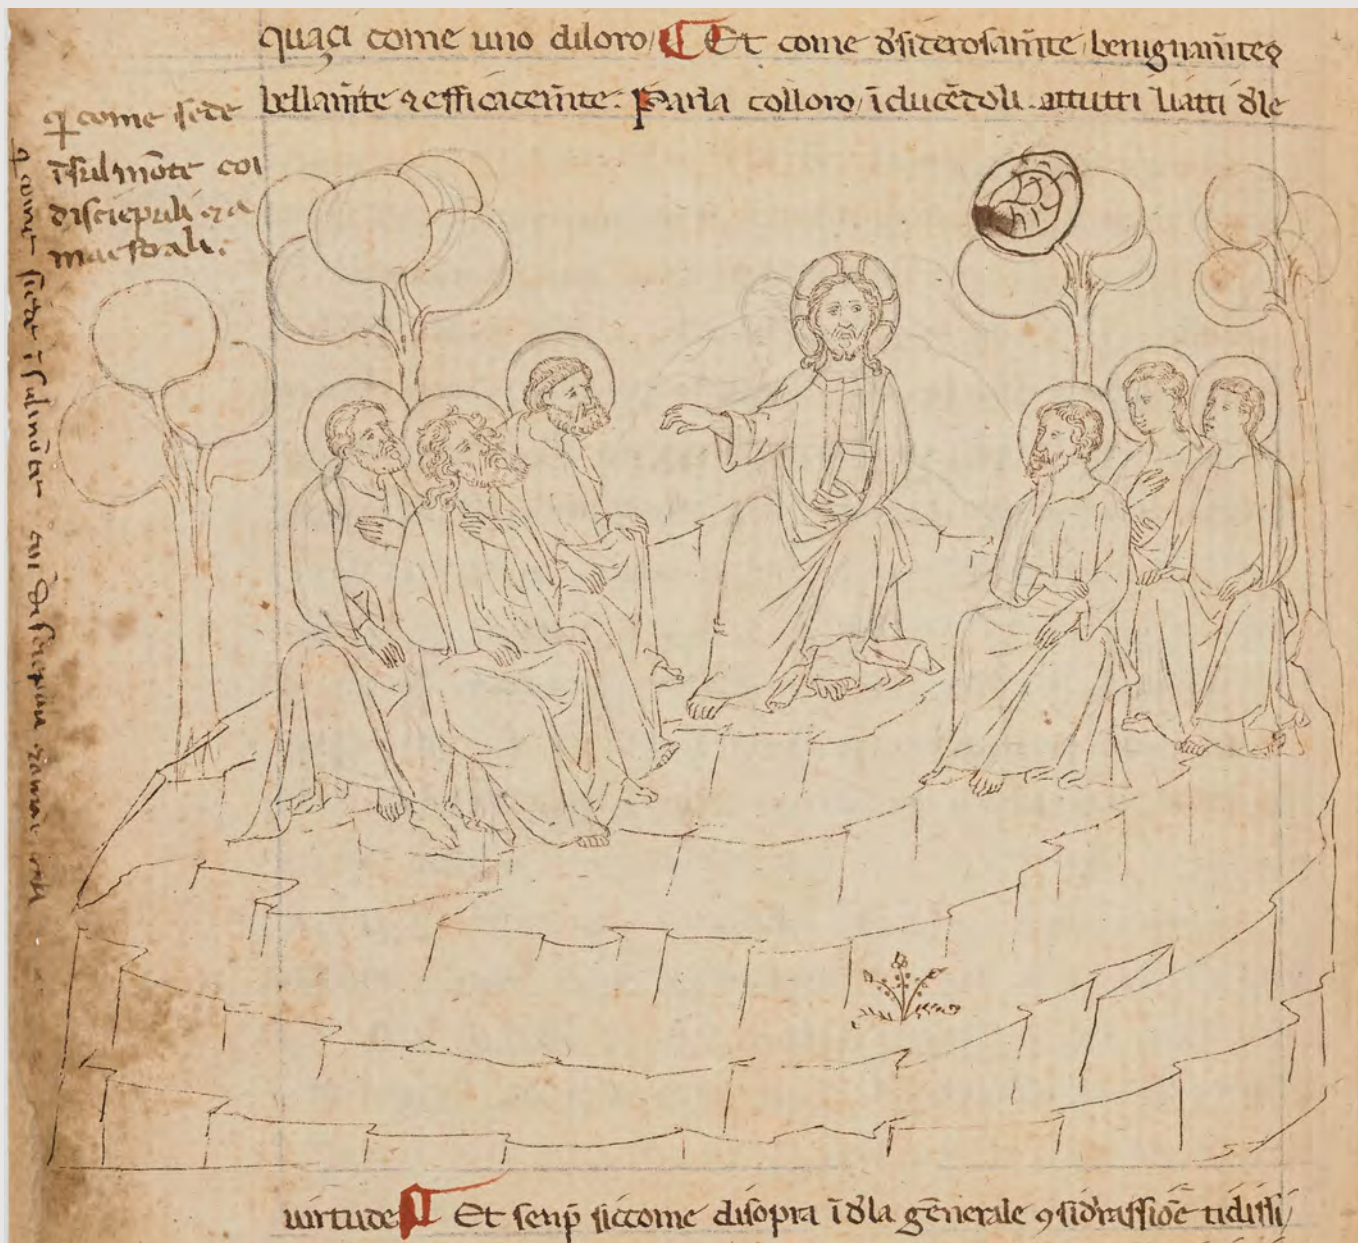 quaçi come uno diloro Et come dʼsiderosam̄te benignam̄te ⁊
bellam̄te ⁊ efficacem̄te. Parla colloro, īducēdoli attutti liatti dʼle
q̄ come sede
ī sul mōte coi
disciepuli ⁊ a
maestrali.
q̄ come siede ī sul mōte coi disciepuli
uirtude Et senp̄ siccome disopra ī dʼla gēnerale ꝯsidʼrassiōe tidissi